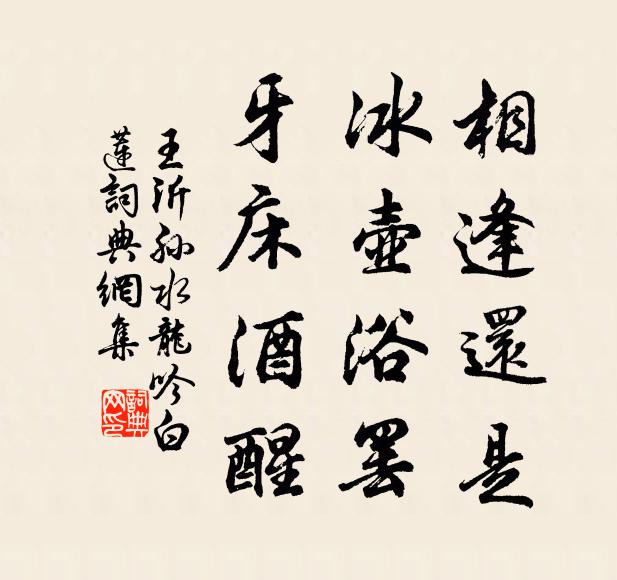 相逢還是
冰壺浴罷
牙床酒醒
王沂孙水龍吟白
蓮詞典網集
詞典网印